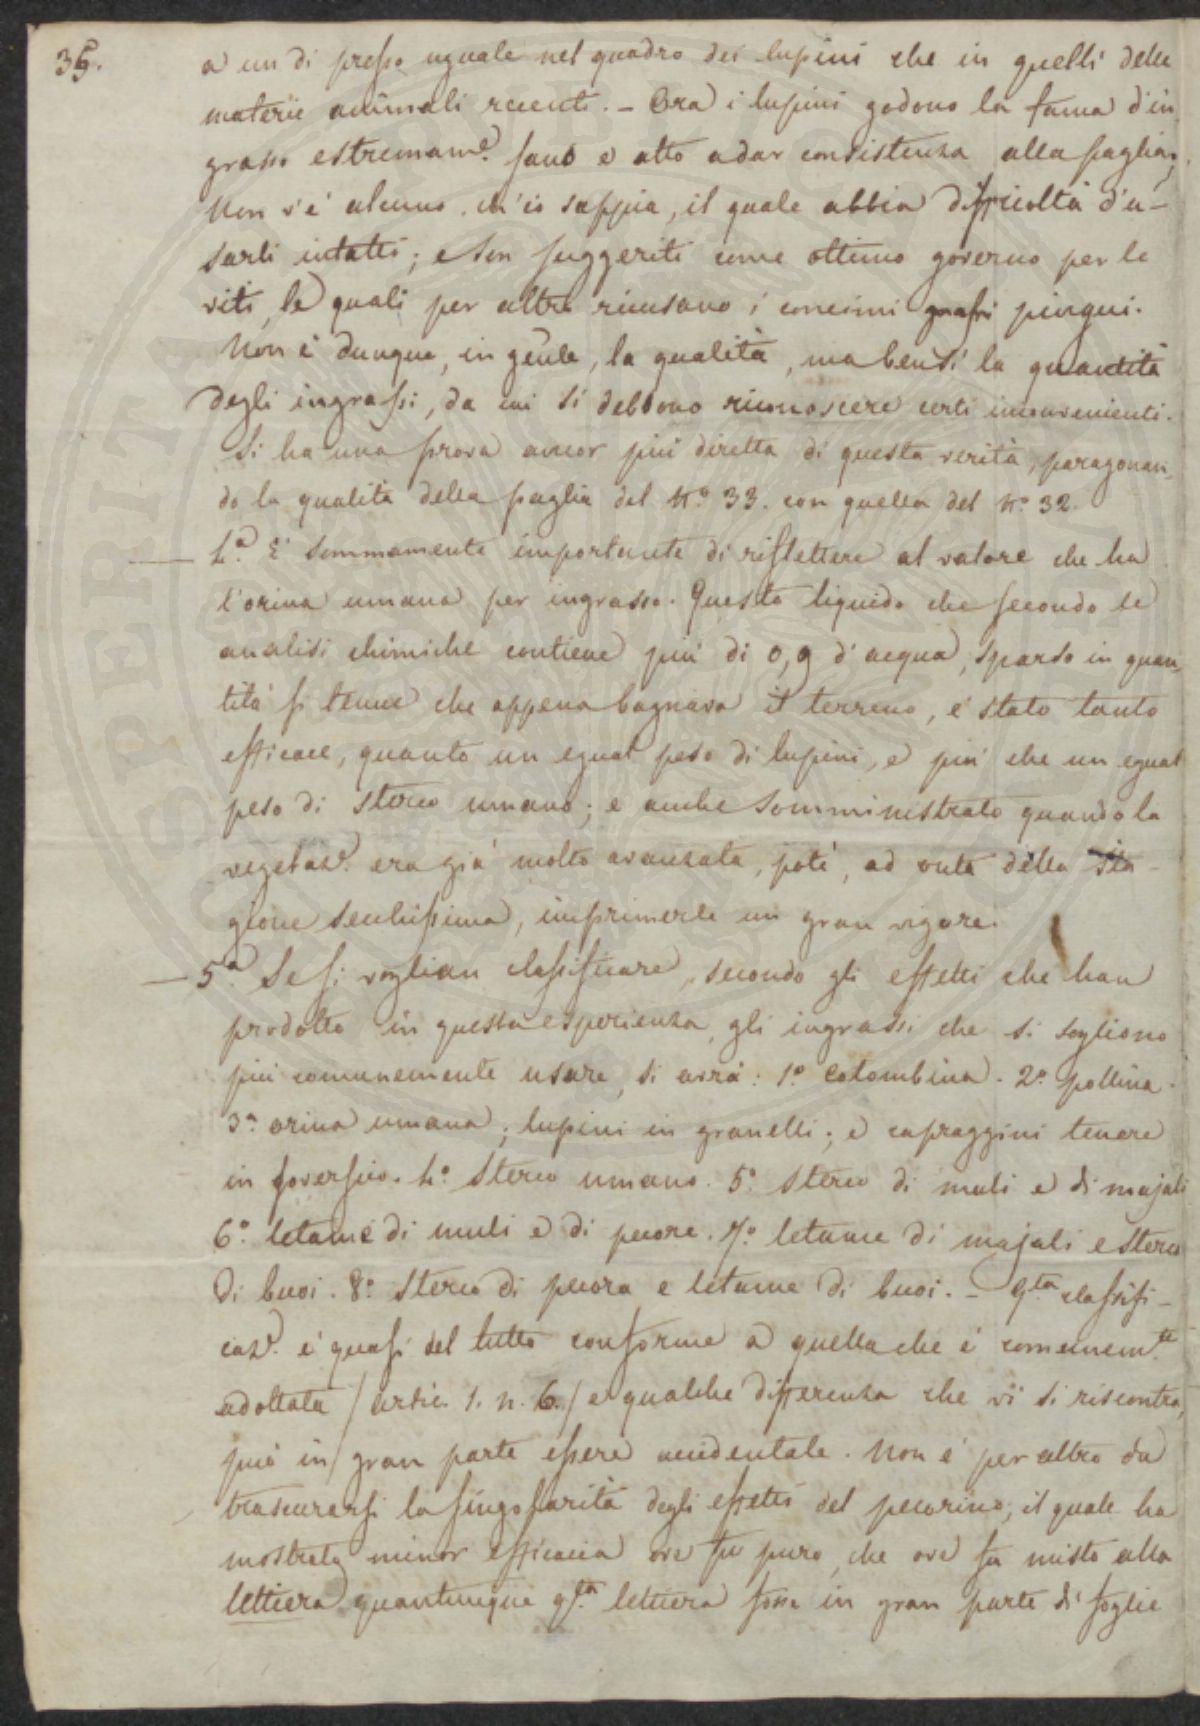 35.
a un di presso uguale nel quadro dei lupini che in quelli delle
materie animali recenti. – Ora i lupini godono la fama d'in
grasso estremam.e sano e atto a dar consistenza alla paglia;
Non v'è alcuno, ch'io sappia, il quale abbia difficoltà d'u-
sarli intatti; e son suggeriti come ottimo governo per le
viti, le quali per altro ricusano i concimi grassi pingui.
Non è dunque, in gen.le, la qualità, ma bensì la quantità
degli ingrassi, da cui si debbono riconoscere certi inconvenienti.
Si ha una prova ancor più diretta di questa verità, paragonan-
do la qualità della paglia del N.o 33. con quella del N.o 32.
4.a È sommamente importante di riflettere al valore che ha
l'orina umana per ingrasso. Questo liquido che secondo le
analisi chimiche contiene più di 0,9 d'acqua, sparso in quan-
tità sì tenue che appena bagnava il terreno, è stato tanto
efficace, quanto un egual peso di lupini, e più che un egual
peso di sterco umano; e anche somministrato quando la
vegetaz.e era già molto avanzata, potè, ad onta della sta-
gione secchissima, imprimerle un gran vigore.
5.a Se si voglian classificare, secondo gli effetti che han
prodotto in questa esperienza, gli ingrassi che si sogliono
più comunemente usare, si avrà: 1.o Colombina. 2.o pollina.
3.o orina umana; lupini in granelli; e capraggini tenere
in soverscio. 4.o Sterco umano. 5.o Sterco di muli e di majali
6.o letame di muli e di pecore. 7.o letame di majali e sterco
di buoi. 8.o Sterco di pecora e letame di buoi. – Q.sta classifi-
caz.e è quasi del tutto conforme a quella che è comunem.te
adottata / artic. 1. n. 6. / e qualche differenza che vi si riscontra,
può in gran parte essere accidentale. Non è per altro da
trascurarsi la singolarità degli effetti del pecorino, il quale ha
mostrata minor efficacia ove fu puro, che ove fu misto alla
lettiera quantunque q.sta lettiera fosse in gran parte di foglie